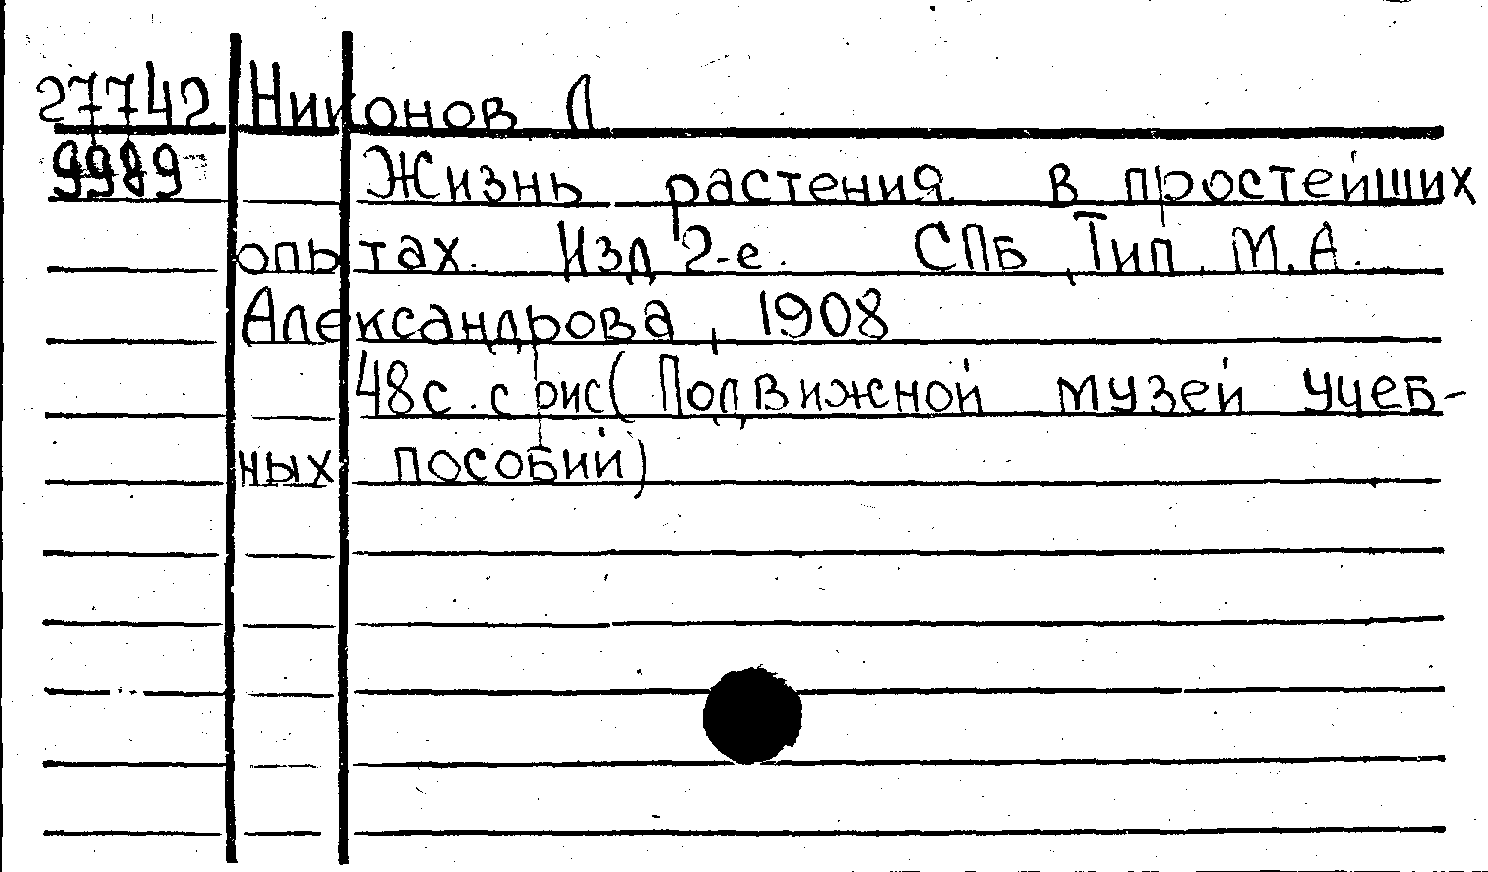 27742 Никонов Л
9989 Жизнь растения в простейших
опытах. Изд 2-е. СПБ, Тип. М.А.
Александрова, 1908
48с. с рис( Подвижной музей учеб-
ных пособий)